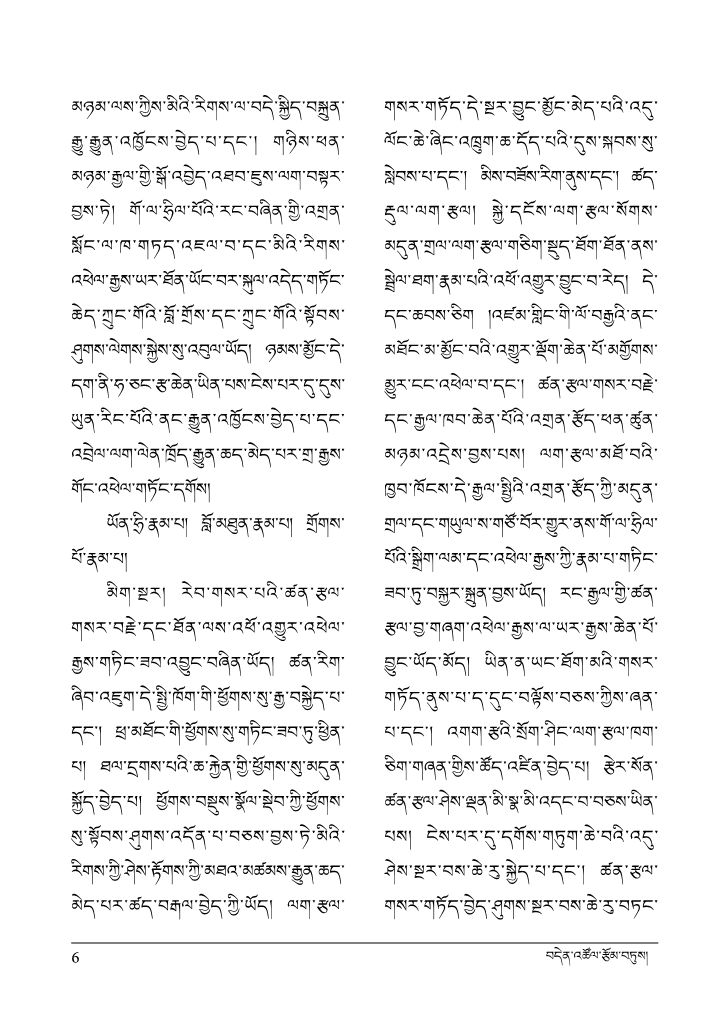 མཉམ་ལས་ཀྱིས་མིའི་རིགས་ལ་བདེ་སྐྱིད་བསྐྲུན་
རྒྱུ་རྒྱུན་འཁྱོངས་བྱེད་པ་དང་། གཉིས་ཕན་
མཉམ་རྒྱལ་གྱི་སྒོ་འབྱེད་འཐབ་ཇུས་ལག་བསྟར་
བྱས་ཏེ། གོ་ལ་ཧྲིལ་པོའི་རང་བཞིན་གྱི་འགྲན་
སློང་ལ་ཁ་གཏད་འཇལ་བ་དང་མིའི་རིགས་
འཕེལ་རྒྱས་ཡར་ཐོན་ཡོང་བར་སྐུལ་འདེད་གཏོང་
ཆེད་ཀྲུང་གོའི་བློ་གྲོས་དང་ཀྲུང་གོའི་སྟོབས་
ཤུགས་ལེགས་སྐྱེས་སུ་འབུལ་ཡོད། ཉམས་མྱོང་དེ་
དག་ནི་ཧ་ཅང་རྩ་ཆེན་ཡིན་པས་ངེས་པར་དུ་དུས་
ཡུན་རིང་པོའི་ནང་རྒྱུན་འཁྱོངས་བྱེད་པ་དང་
འབྲེལ་ལག་ལེན་ཁྲོད་རྒྱུན་ཆད་མེད་པར་གྲ་རྒྱས་
གོང་འཕེལ་གཏོང་དགོས།
ཡོན་ཧྲི་རྣམ་པ། བློ་མཐུན་རྣམ་པ། གྲོགས་
པོ་རྣམ་པ།
མིག་སྔར། རེབ་གསར་པའི་ཚན་རྩལ་
གསར་བརྗེ་དང་ཐོན་ལས་འཕོ་འགྱུར་འཕེལ་
རྒྱས་གཏིང་ཟབ་འབྱུང་བཞིན་ཡོད། ཚན་རིག་
ཞིབ་འཇུག་དེ་སྤྱི་ཁོག་གི་ཕྱོགས་སུ་རྒྱ་བསྐྱེད་པ་
དང་། ཕྲ་མཐོང་གི་ཕྱོགས་སུ་གཏིང་ཟབ་ཏུ་ཕྱིན་
པ། ཐལ་དྲགས་པའི་ཆ་རྐྱེན་གྱི་ཕྱོགས་སུ་མདུན་
སྐྱོད་བྱེད་པ། ཕྱོགས་བསྡུས་སྣོལ་སྡེབ་ཀྱི་ཕྱོགས་
སུ་སྟོབས་ཤུགས་འདོན་པ་བཅས་བྱས་ཏེ་མིའི་
རིགས་ཀྱི་ཤེས་རྟོགས་ཀྱི་མཐའ་མཚམས་རྒྱུན་ཆད་
མེད་པར་ཚད་བརྒལ་བྱེད་ཀྱི་ཡོད། ལག་རྩལ་
གསར་གཏོད་དེ་སྔར་བྱུང་མྱོང་མེད་པའི་འདུ་
ལོང་ཆེ་ཞིང་འཁྲུག་ཆ་དོད་པའི་དུས་སྐབས་སུ་
སླེབས་པ་དང་། མིས་བཟོས་རིག་ནུས་དང་། ཚད་
རྡུལ་ལག་རྩལ། སྐྱེ་དངོས་ལག་རྩལ་སོགས་
མདུན་གྲལ་ལག་རྩལ་གཅིག་སྡུད་ཐོག་ཐོན་ནས་
སྦྲེལ་ཐག་རྣམ་པའི་འཕོ་འགྱུར་བྱུང་བ་རེད། དེ་
དང་ཆབས་ཅིག །འཛམ་གླིང་གི་ལོ་བརྒྱའི་ནང་
མཐོང་མ་མྱོང་བའི་འགྱུར་ལྡོག་ཆེན་པོ་མགྱོགས་
མྱུར་ངང་འཕེལ་བ་དང་། ཚན་རྩལ་གསར་བརྗེ་
དང་རྒྱལ་ཁབ་ཆེན་པོའི་འགྲན་རྩོད་ཕན་ཚུན་
མཉམ་འདྲེས་བྱས་པས། ལག་རྩལ་མཐོ་བའི་
ཁྱབ་ཁོངས་དེ་རྒྱལ་སྤྱིའི་འགྲན་རྩོད་ཀྱི་མདུན་
གྲལ་དང་གཡུལ་ས་གཙོ་བོར་གྱུར་ནས་གོ་ལ་ཧྲིལ་
པོའི་སྒྲིག་ལམ་དང་འཕེལ་རྒྱས་ཀྱི་རྣམ་པ་གཏིང་
ཟབ་ཏུ་བསྐྱར་སྐྲུན་བྱས་ཡོད། རང་རྒྱལ་གྱི་ཚན་
རྩལ་བྱ་གཞག་འཕེལ་རྒྱས་ལ་ཡར་རྒྱས་ཆེན་པོ་
བྱུང་ཡོད་མོད། ཡིན་ན་ཡང་ཐོག་མའི་གསར་
གཏོད་ནུས་པ་ད་དུང་བལྟོས་བཅས་ཀྱིས་ཞན་
པ་དང་། འགག་རྩའི་སྲོག་ཤིང་ལག་རྩལ་ཁག་
ཅིག་གཞན་གྱིས་ཚོད་འཛིན་བྱེད་པ། རྩེར་སོན་
ཚན་རྩལ་ཤེས་ལྡན་མི་སྣ་མི་འདང་བ་བཅས་ཡིན་
པས། ངེས་པར་དུ་དགོས་གཏུག་ཆེ་བའི་འདུ་
ཤེས་སྔར་བས་ཆེ་རུ་སྐྱེད་པ་དང་། ཚན་རྩལ་
གསར་གཏོད་བྱེད་ཤུགས་སྔར་བས་ཆེ་རུ་བཏང་
6
བདེན་འཚོལ་རྩོམ་བཏུས།